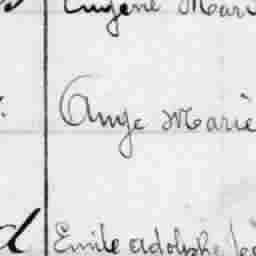 Eugene Marie
Ange Marie
Emile adolphe